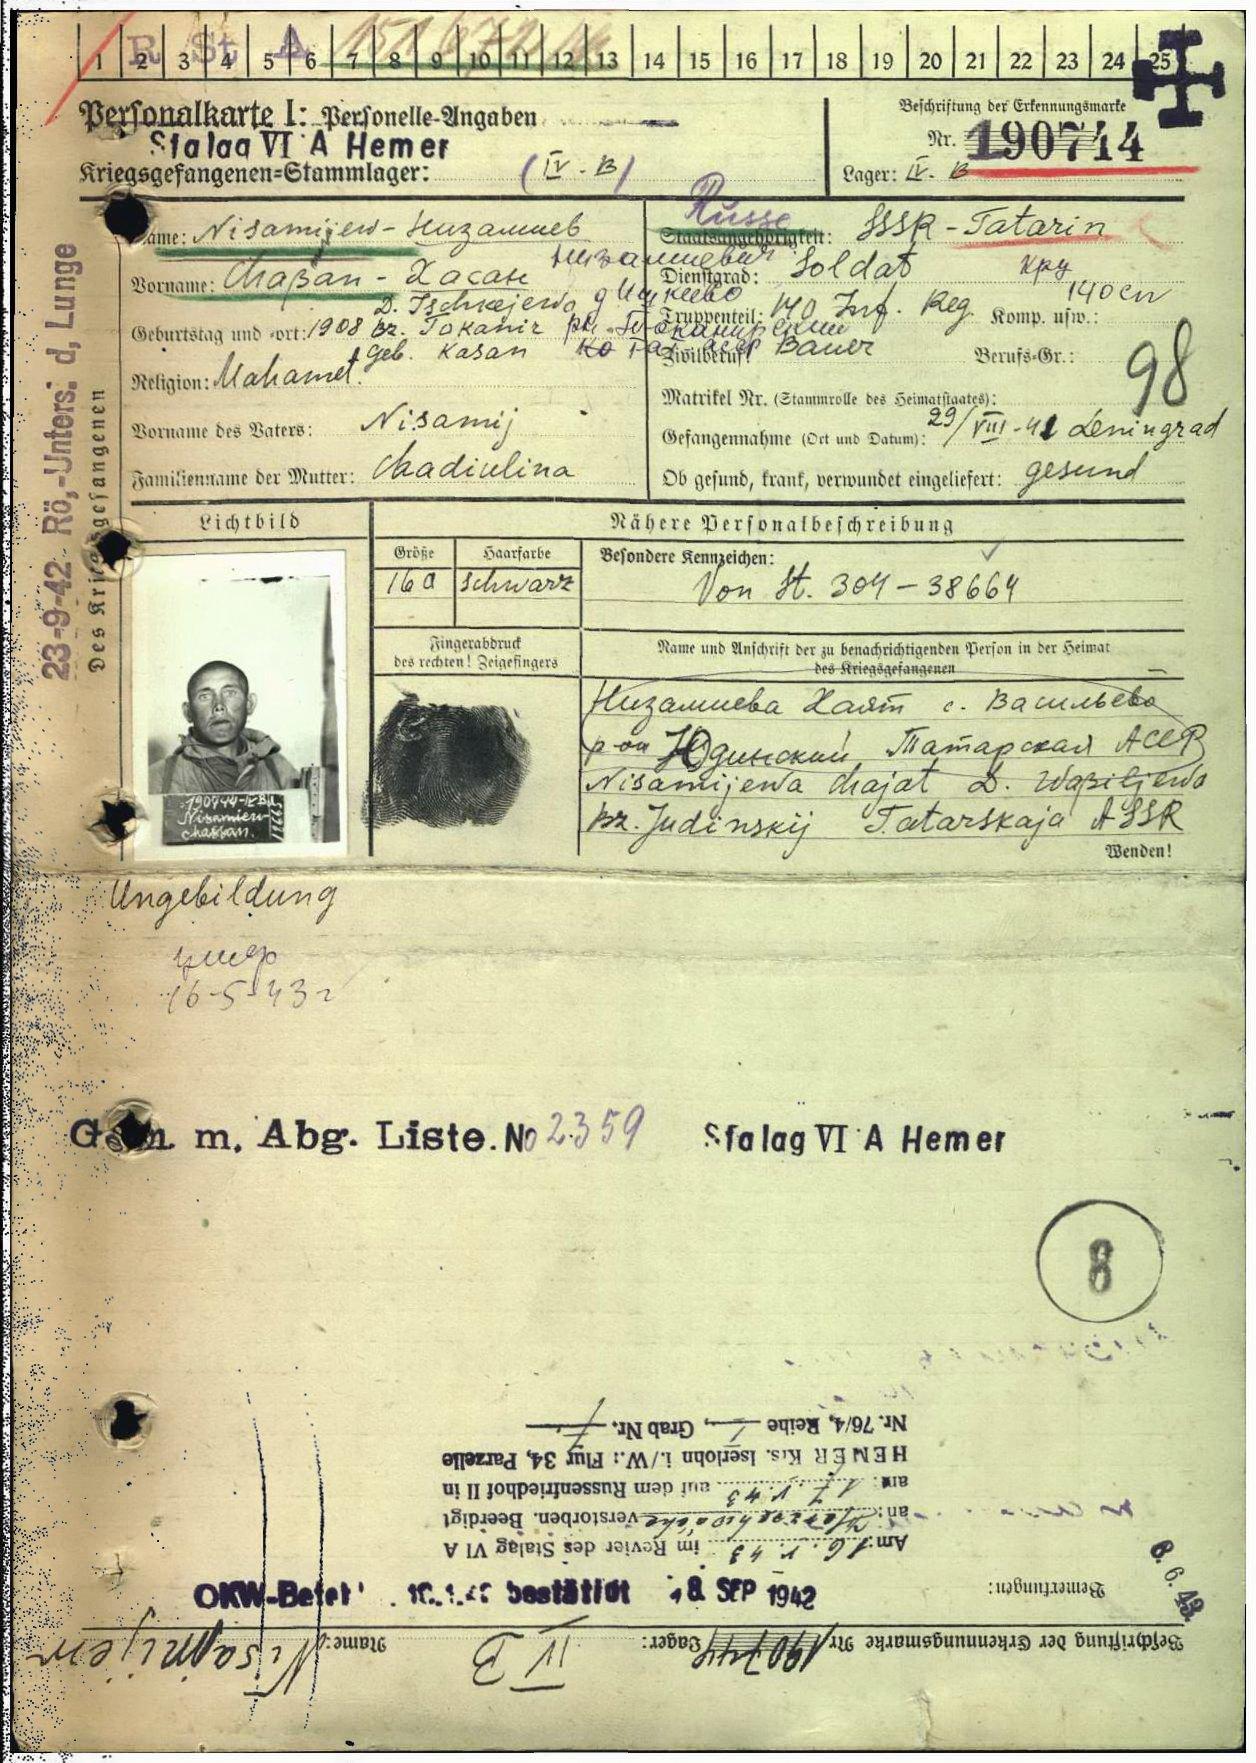 1 2 3 4 5 6 7 8 9 10 11 12 13 14 15 16 17 18 19 20 21 22 23 24 25
R St A
Personalkarte I: Personelle Angaben
Stalag VI A Hemer
Kriegsgefangenen-Stammlager: (IV-B)
Beschriftung der Erkennungsmarke
Nr. 190744
Lager: IV-B
Name: Nisamijew - Низамиев
Низамиевич
Vorname: Chaßan - Хасан
D. Ischkejewo д Ишкеево
Geburtstag und -ort: 1908 bz. Tokanir
Geb. Kasan
Religion: Mahamet.
Vorname des Vaters: Nisamij
Familienname der Mutter: Chadiulina
Russe
Staatsangehörigkeit: SSSR - Tatarin
Dienstgrad: Soldat
Truppenteil: 140 Inf. Reg Komp. usw.:
140 сп
Zivilberuf: Bauer Berufs-Gr.:
98
Matrikel Nr. (Stammrolle des Heimatstaates):
Gefangennahme (Ort und Datum): 29/VIII-41 Leningrad
Ob gesund, krank, verwundet eingeliefert: gesund
23-9-42 Rö,-Unters. d, Lunge
Des Kriegsgefangenen
Lichtbild
Nähere Personalbeschreibung
Größe Haarfarbe Besondere Kennzeichen:
160 schwarz Von St. 304 - 38664
Fingerabdruck
des rechten! Zeigefingers
Name und Anschrift der zu benachrichtigenden Person in der Heimat
des Kriegsgefangenen
Низамиева Хаят с. Васильево
р-он Юдинский Татарская АССР
Nisamijewa Chajat D. Waßiljewo
bz. Judinskij Tatarskaja ASSR
Wenden!
190744-IV B
Nisamiew
Chassan.
Ungebildung
умер
16-5-43 г
Gem. m. Abg. Liste. No 2359
Stalag VI A Hemer
8
Beschriftung der Erkennungsmarke Nr. 190744 Lager: IV B Name: Nisamijew
Bemerkungen:
8. 6. 43.
OKW-Befel bestätigt 8. SEP 1942
Am: 16. V. 43 im Revier des Stalag VI A
an: Herzschwäche verstorben. Beerdigt
am: 17. V. 43 auf dem Russenfriedhof II in
HEMER Krs. Iserlohn i./W.: Flur 34, Parzelle
Nr. 76/4, Reihe Grab Nr.